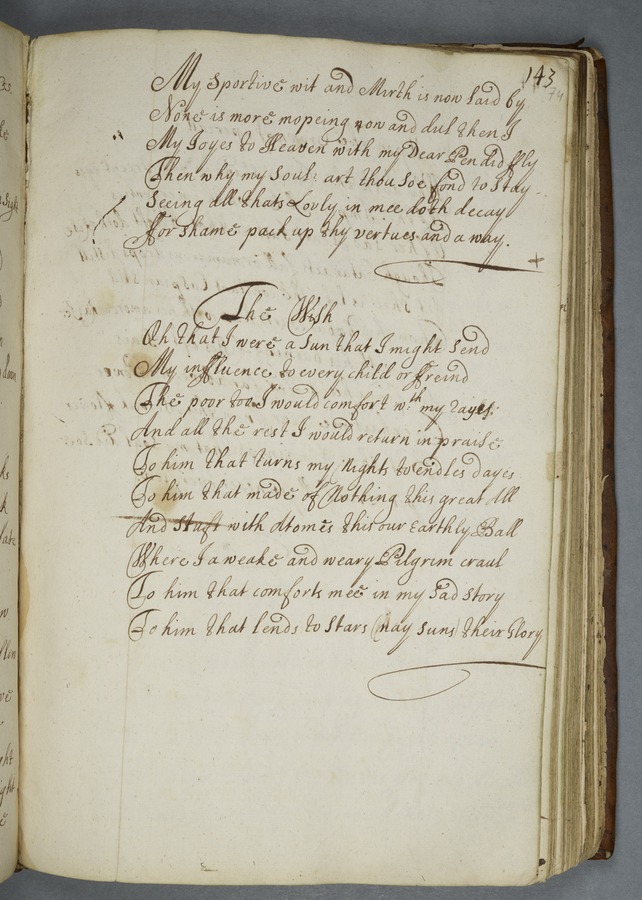 143
74
My Sportive wit and Mirth is now laid by
None is more mopeing now and dul then I
My Joyes to Heaven with my Dear Pen did fly
Then why my Soul: art thou soe fond to Stay
Seeing all thats Lovly in mee doth decay
ffor shame pack up thy vertues and a way.
The Wish
Oh that I were a Sun that I might Send
My influence to every child or ffreind
The poor too I would comfort wth my rayes
And all the rest I would return in praise
To him that turns my Nights to endles dayes
To him that made of Nothing this great All
And Stuft with Atomes this our Earthly Ball
Where I a weake and weary Pilgrim craul
To him that comforts mee in my Sad story
To him that lends to Stars (nay suns) their Glory